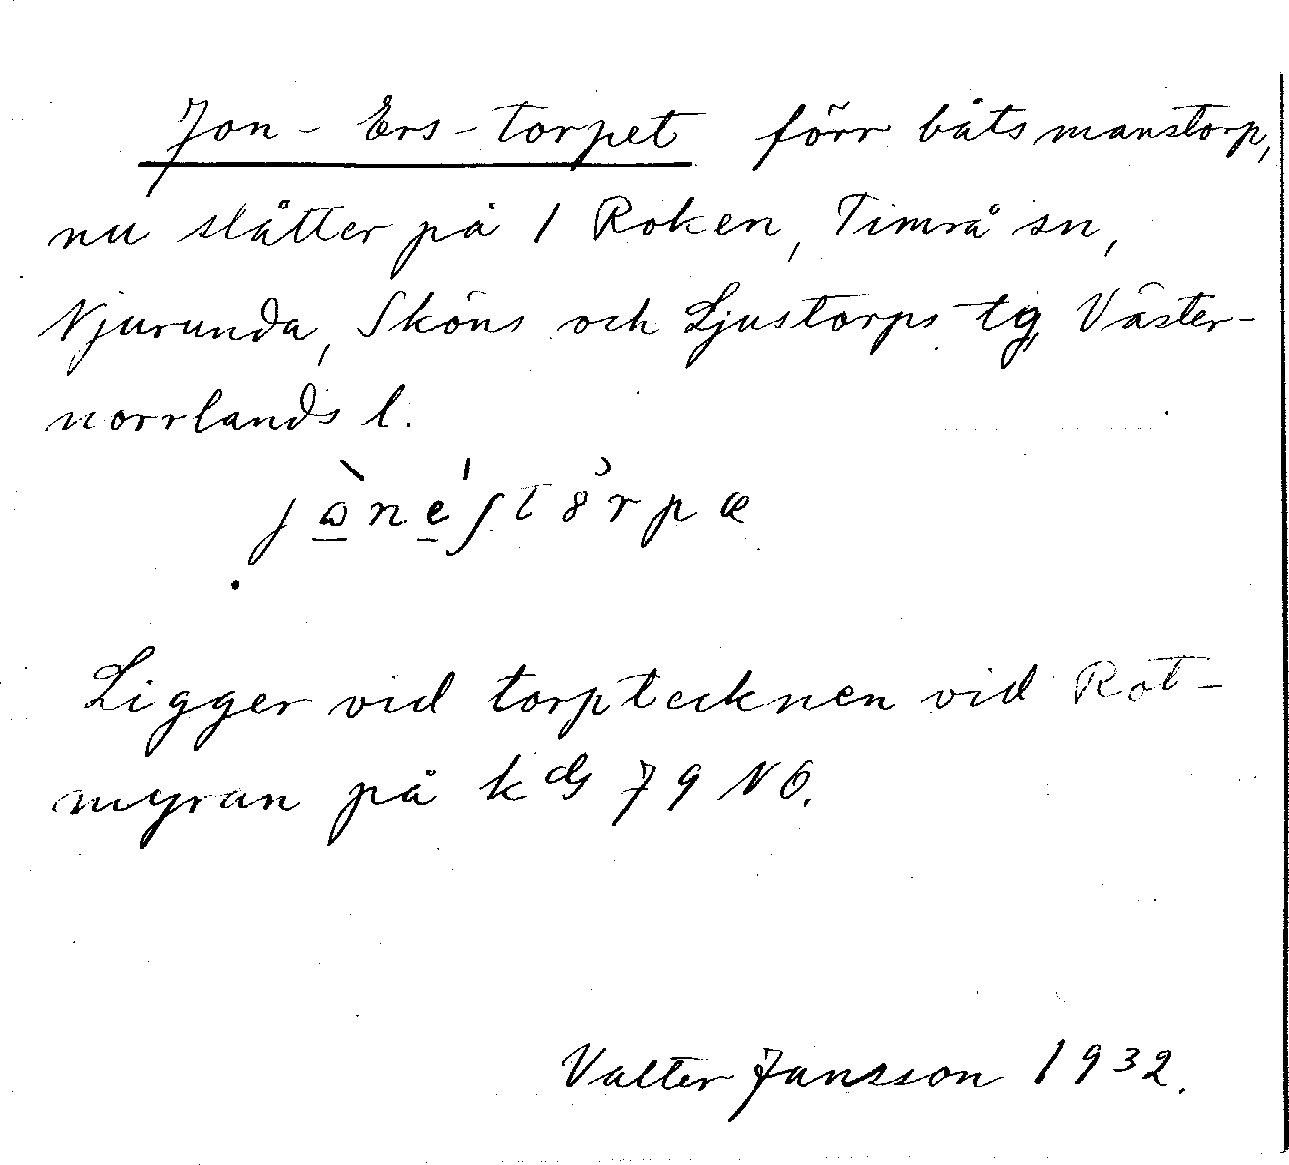 Jon-Ers-torpet förr båtsmanstorp,
nu slåtter på 1 Roken, Timrå sn,
Njurunda, Sköns och Ljustorps tg, Väster-
norrlands l.
Ligger vid torptecknen vid Rot-
myran på kbl 79 NO.
Valter Jansson 1932.